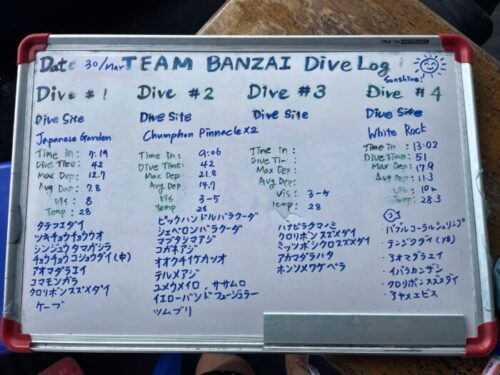 Date 30/Mar TEAM BANZAI Dive Log
Sunshine!
Dive #1
Dive Site
Japanese Garden
Time in: 7:19
Dive Time: 42
Max Dep: 12.7
Avg Dep: 7.8
Vis: 8
Temp: 28
タテフエダイ
ツキチョウチョウウオ
シンジュウタマガシラ
チョウチョウコショウダイ(中)
アオマダラエイ
コマモンガラ
クロリボンスズメダイ
ケーブ
Dive #2
Dive Site
Chumphon Pinnacle x2
Time in: 9:06
Dive Time: 42
Max Dep: 21.8
Avg Dep: 14.7
Vis 3-5
Temp 28
ピックハンドルバラクーダ
シェベロンバラクーダ
マブタシマアジ
コガネアジ
オオクチイケカツオ
テルメアジ
ユメウメイロ、ササムロ
イエローバンドフュージュラー
ツムブリ
Dive #3
Dive Site
Time in:
Dive Time:
Max Dep:
Avg Dep:
Vis: 3-4
Temp: 28
ハナビラクマノミ
クロリボンスズメダイ
ミツボシクロスズメダイ
アカマダラハタ
ホンソメワケベラ
Dive #4
Dive Site
White Rock
Time in: 13:02
Dive Time: 51
Max Dep: 17.9
Avg Dep: 11.3
Vis: 10m
Temp: 28.3
・バブルコーラルシュリンプ
・テンジクダイ(YB)
・アオマダラエイ
・イバラカンザシ
・クロリボンスズメダイ
・アヤメエビス